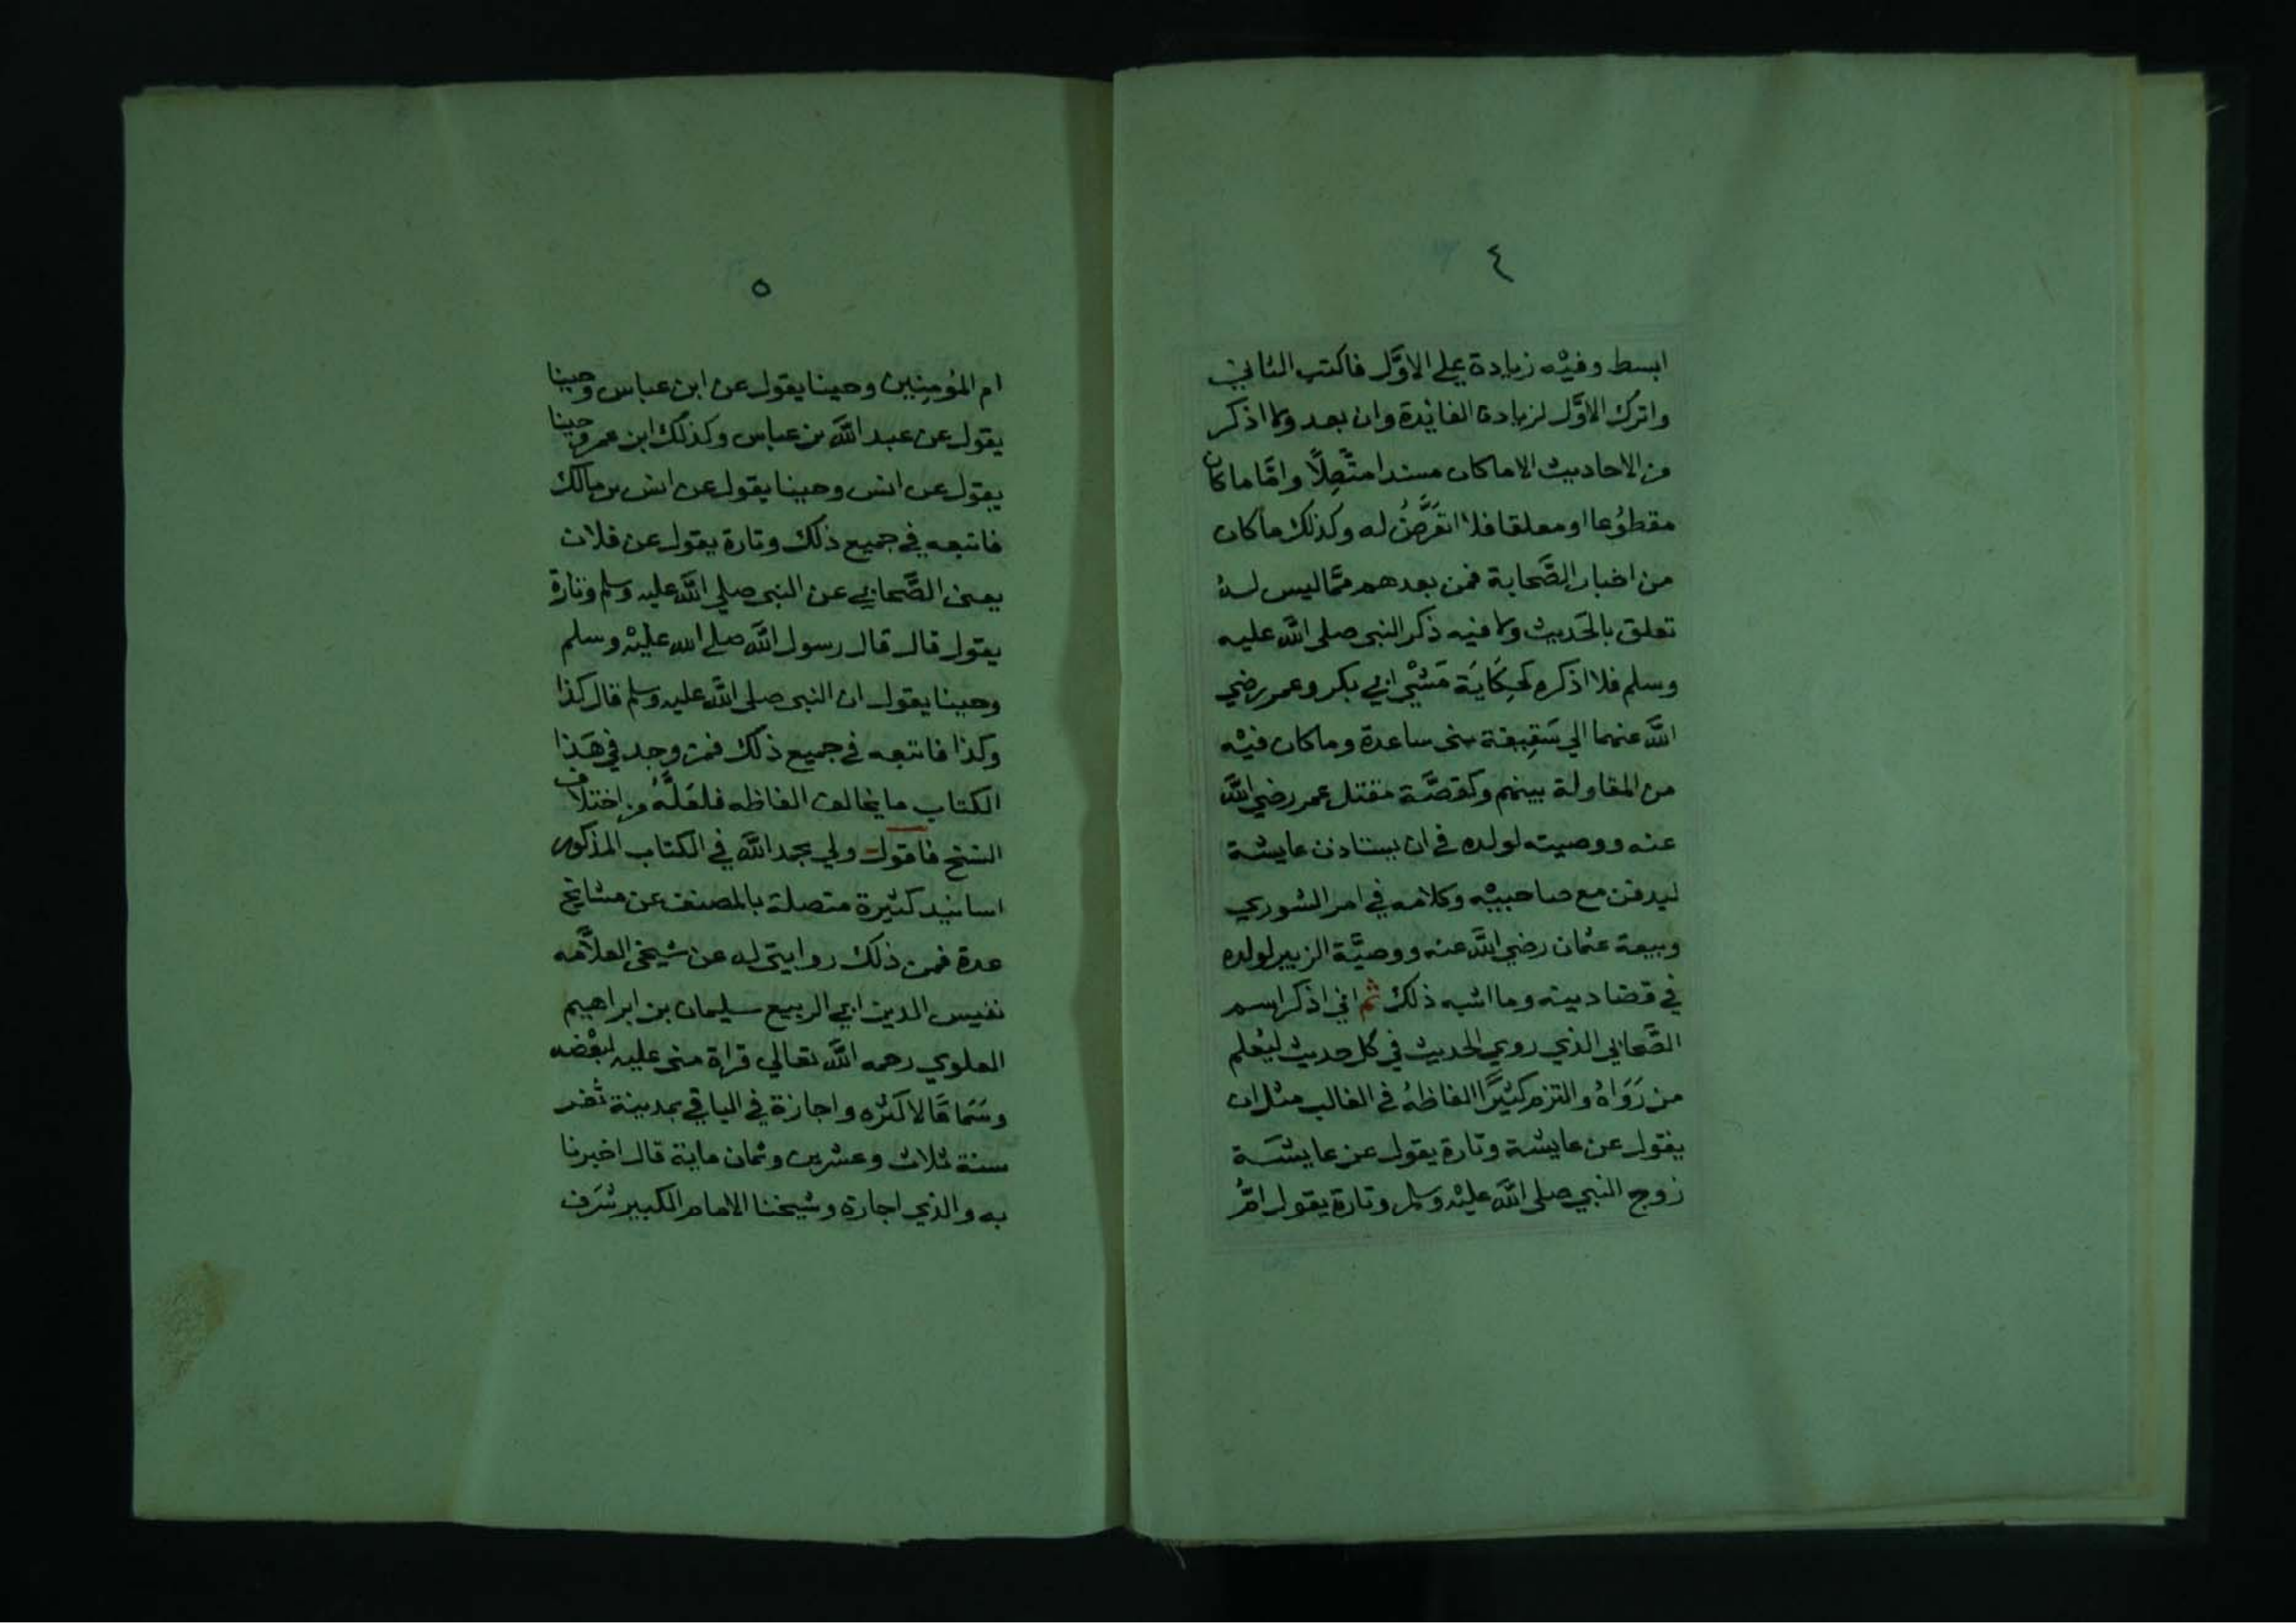 ٤
ابسط وفيْه زيادة علي الاوَّل فاكتب الثاني
واترك الاوَّل لزيادة الفائدة وان بعد ولا اذكر
من الاحاديث الا ماكان مسندا متَّصِلًا وامَّا ماكان
مقطوُعا او معلقا فلا اتعَرَّضُ له وكذلك ماكان
من اخبار الصَّحابة فمن بعدهم ممَّا ليس له
تعلق بالحَديث ولا فيه ذكر النبي صلي اللَّه عليه
وسلم فلا اذكره كحِكَايَة مَشْي ابي بكر وعمر رضي
اللَّه عنهما الي سَقِيفة بني ساعدة وماكان فيْه
من المقاولة بينهم وكقصَّة مقتل عمر رضي اللَّه
عنه ووصيته لولده في ان يستاذن عايشة
ليدفن مع صاحبيْه وكلامه في امر الشوري
وبيعة عثمان رضي اللَّه عنه ووصيَّة الزبير لولده
في قضا دينه وما اشبه ذلك ثم اني اذكر اسم
الصَّحابي الذي روي الحديث في كل حديث ليُعلم
من رَوَاهُ والتزم كثيرًا الفاظهُ في الغالب مثل ان
يقول عن عايشة وتارة يقول عن عايشة
زوج النبي صلي اللَّه عليْه وسلم وتارة يقول امُّ
٥
ام المؤمِنِين وحينا يقول عن ابن عباس وحينا
يقول عن عبد اللَّه بن عباس وكذلك ابن عمر وحينا
يقول عن انس وحينا يقول عن انس بن مالك
فاتبعه في جميع ذلك وتارة يقول عن فلان
يعني الصَّحابي عن النبي صلي اللَّه عليه وسلم وتارة
يقول قال قال رسول اللَّه صلي الله عليْه وسلم
وحينا يقول ان النبي صلي اللَّه عليه وسلم قال كذا
وكذا فاتبعه في جميع ذلك فمن وجد في هَذا
الكتاب ما يخالف الفاظه فلعَلَّهُ من اختلاف
النسخ فاقول ولي بحمد اللَّه في الكتاب المذكور
اسانيد كثيرة متصلة بالمصنف عن مشايخ
عدة فمن ذلك روايتي له عن شيخي العلاَّمه
نفيس الدين ابي الربيع سليمان بن ابراهيم
العلوي رحمه اللَّه تعالي قراة مني عليه لبعْضه
وسَمَاعًا لاكثره واجازة في الباقي بمدينة تعز
سنة ثلاث وعشرين وثمان ماية قال اخبرنا
به والدي اجازة وشيخنا الامام الكبير شرَف